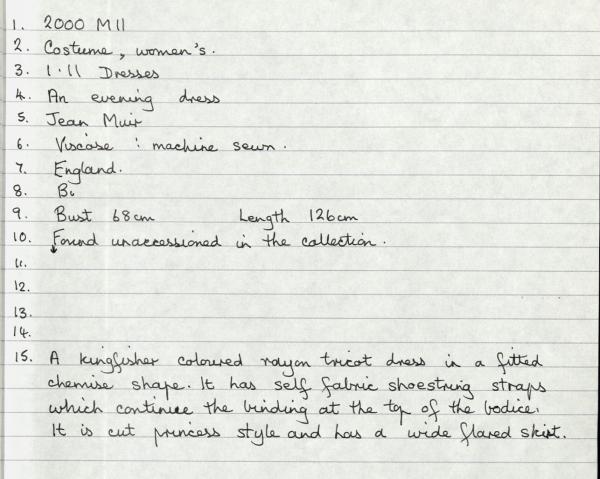 1. 2000 M11
2. Costume, women's.
3. 1.11 Dresses
4. An evening dress
5. Jean Muir
6. Viscose : machine sewn.
7. England.
8.
9. Bust 68cm Length 126cm
10. Found unaccessioned in the collection.
11.
12.
13.
14.
15. A kingfisher coloured rayon tricot dress in a fitted
chemise shape. It has self fabric shoestring straps
which continue the binding at the top of the bodice.
It is cut princess style and has a wide flared skirt.